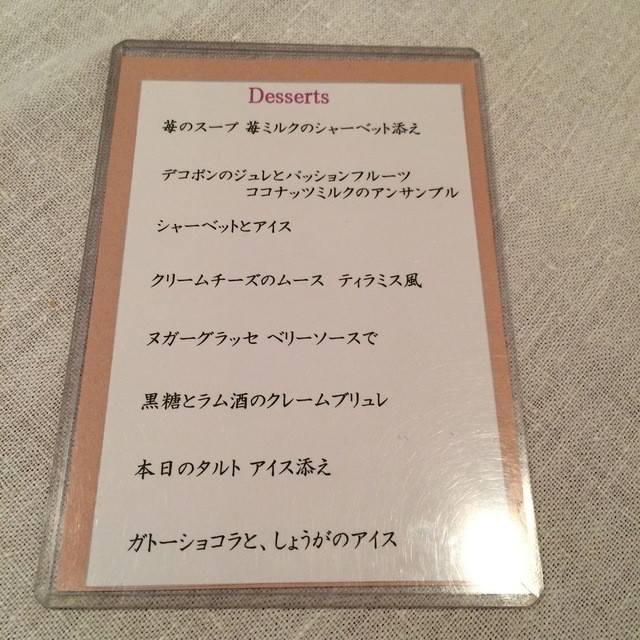 Desserts
苺のスープ 苺ミルクのシャーベット添え
デコポンのジュレとパッションフルーツ
ココナッツミルクのアンサンブル
シャーベットとアイス
クリームチーズのムース ティラミス風
ヌガーグラッセ ベリーソースで
黒糖とラム酒のクレームブリュレ
本日のタルト アイス添え
ガトーショコラと、しょうがのアイス